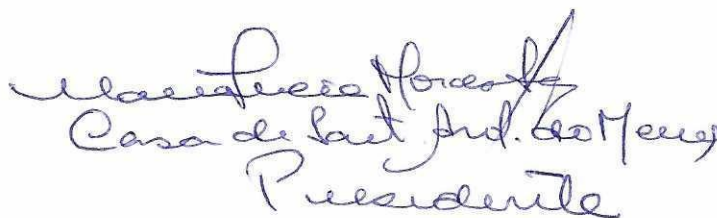 Maria Lucia Moraes
Casa de Sant. And. do Menor
Presidente